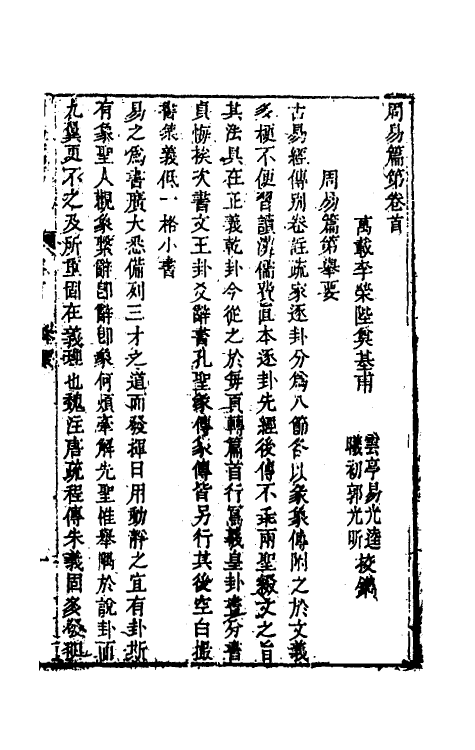 周易篇第卷首
萬載李榮陛奠基甫
雲亭易光逵
曦初郭光昕
校鐫
周易篇第舉要
古易經傳別卷註疏家逐卦分為八節各以彖象傳附之於文義
多梗不便習讀漢儒費直本逐卦先經後傳不乖兩聖綴文之旨
其法具在正義乾卦今從之於每頁轉篇首行寫羲皇卦畫分書
貞悔挨次書文王卦爻辭書孔聖彖傳象傳皆另行其後空白撮
舊衆義低一格小書
易之為書廣大悉備列三才之道而發揮日用動靜之宜有卦斯
有象聖人觀象繫辭卽辭卽象何煩牽解先聖惟舉隅於說卦而
九翼更不之及所重固在義理也魏注唐疏程傳朱義固多發揮